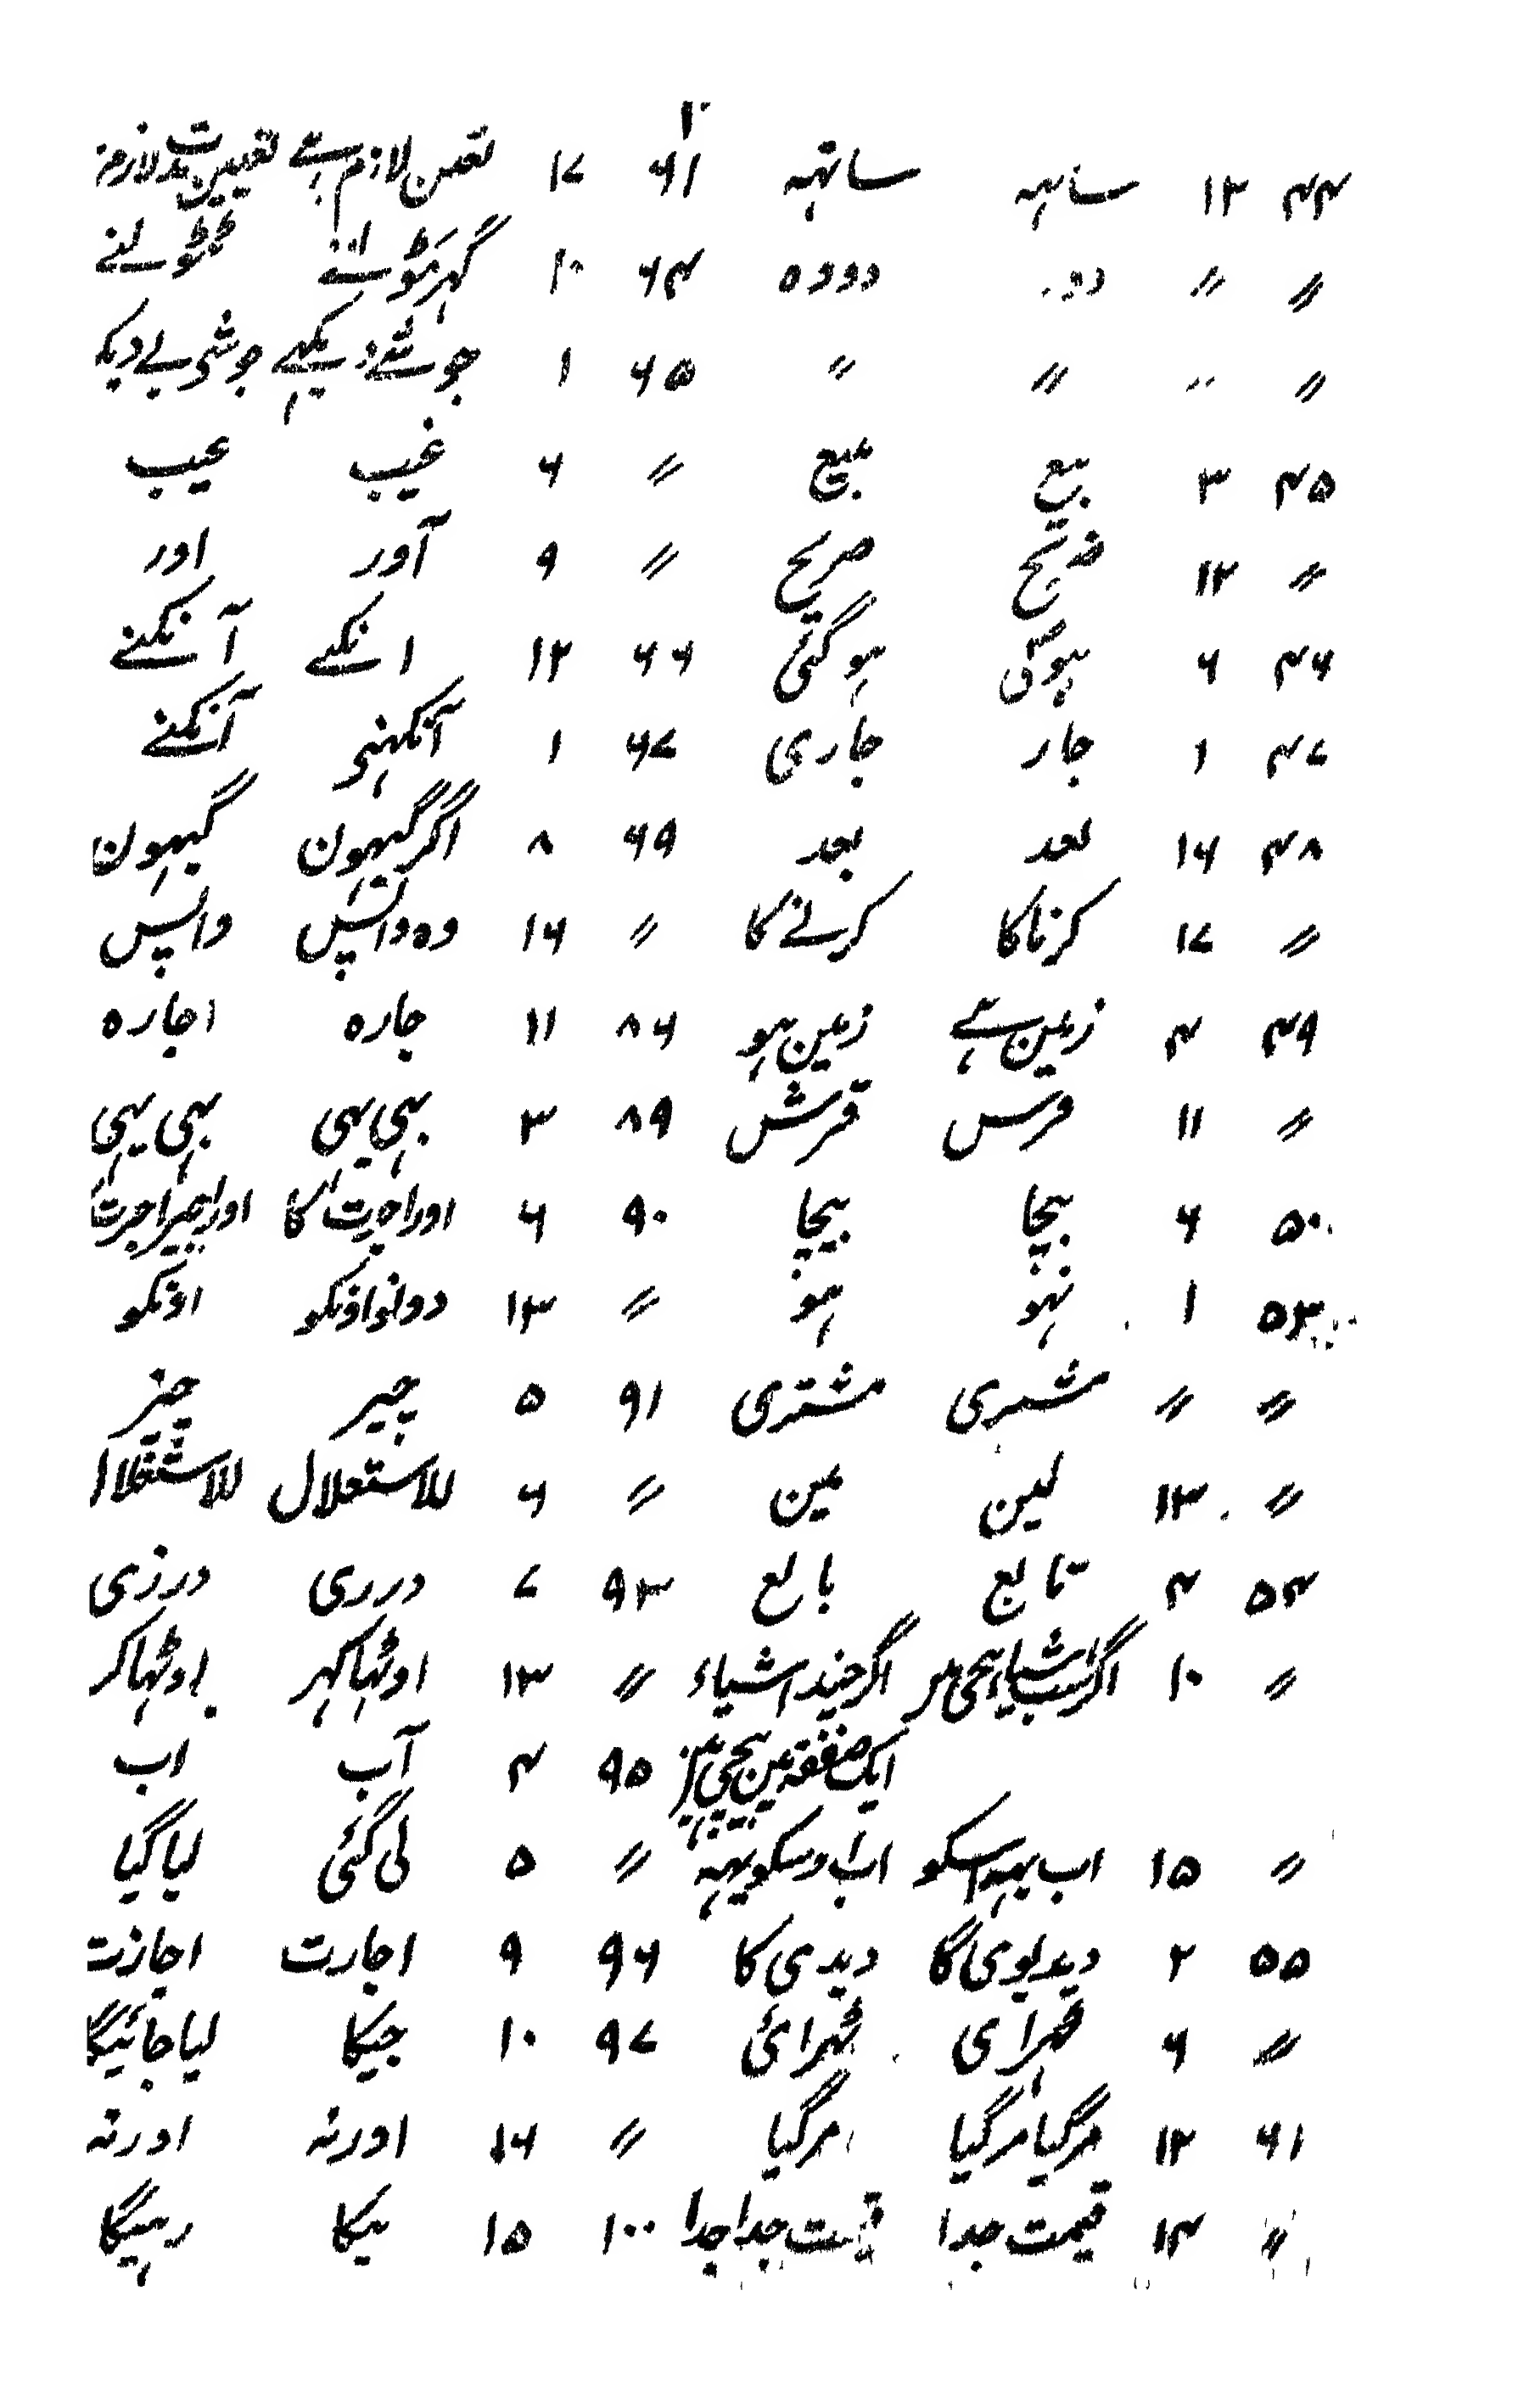 ۲
۴۴ ۱۲ ساہہ ساتہہ ۶۱ ۱۷ تعین لازم ہے تعیین مدت لازم
〃 〃 دو دووہ ۶۴ ۱۰ ٹٹولنے
〃 〃 〃 〃 ۶۵ ۱ جو شے دیکہے جو شی بے دیکہ
۴۵ ۳ بیع مبیع 〃 ۶ غیب عیب
〃 ۱۲ صریح 〃 ۹ آور اور
۴۶ ۶ ہوگی ہو گئی ۶۶ ۱۲ انکے آنکنے
۴۷ ۱ جار جاری ۶۷ ۱ آنکہنی آنکنے
۴۸ ۱۶ لعد بعد ۶۹ ۸ اگر گیہون گیہون
〃 ۱۷ کرناکا کرنے کا 〃 ۱۶ وہ واپس واپس
۴۹ ۴ زمین ہے زمین ہو ۸۶ ۱۱ جارہ اجارہ
〃 ۱۱ فرس قرش ۸۹ ۳ بہی یہی بہی یہی
۵۰ ۶ بچا بیچا ۹۰ ۶ اور اجرت کا اور اجیر اجرت
۵۳ ۱ نہو ہو 〃 ۱۳ دولو اونکو اونکو
〃 〃 مشسری مشتری ۹۱ ۵ چیر چیز
〃 ۱۳ لین مین 〃 ۶ للاستعلال للاستغلال
۵۴ ۴ تابع بالع ۹۳ ۷ درری درزی
〃 ۱۰ اگر اشیا اگر چند اشیاء 〃 ۱۳ اوٹہا کہر اوٹہا کر
ایک صفقہ مین بیچی ۹۵ ۴ آب اب
〃 ۱۵ اب یہہ اسکو اب اوسکو یہہ 〃 ۵ لی گئی لیا گیا
۵۵ ۲ دیدیوی گا دیدی کا ۹۶ ۹ اجارت اجازت
〃 ۶ ٹہرای ٹہرائی ۹۷ ۱۰ جیکا لیا جائیگا
۶۱ ۱۲ مر گیا مر گیا مر گیا 〃 ۱۶ اورنہ اورنہ
〃 ۱۴ قیمت جدا قیمت جدا جدا ۱۰۰ ۱۵ یکا رہیگا